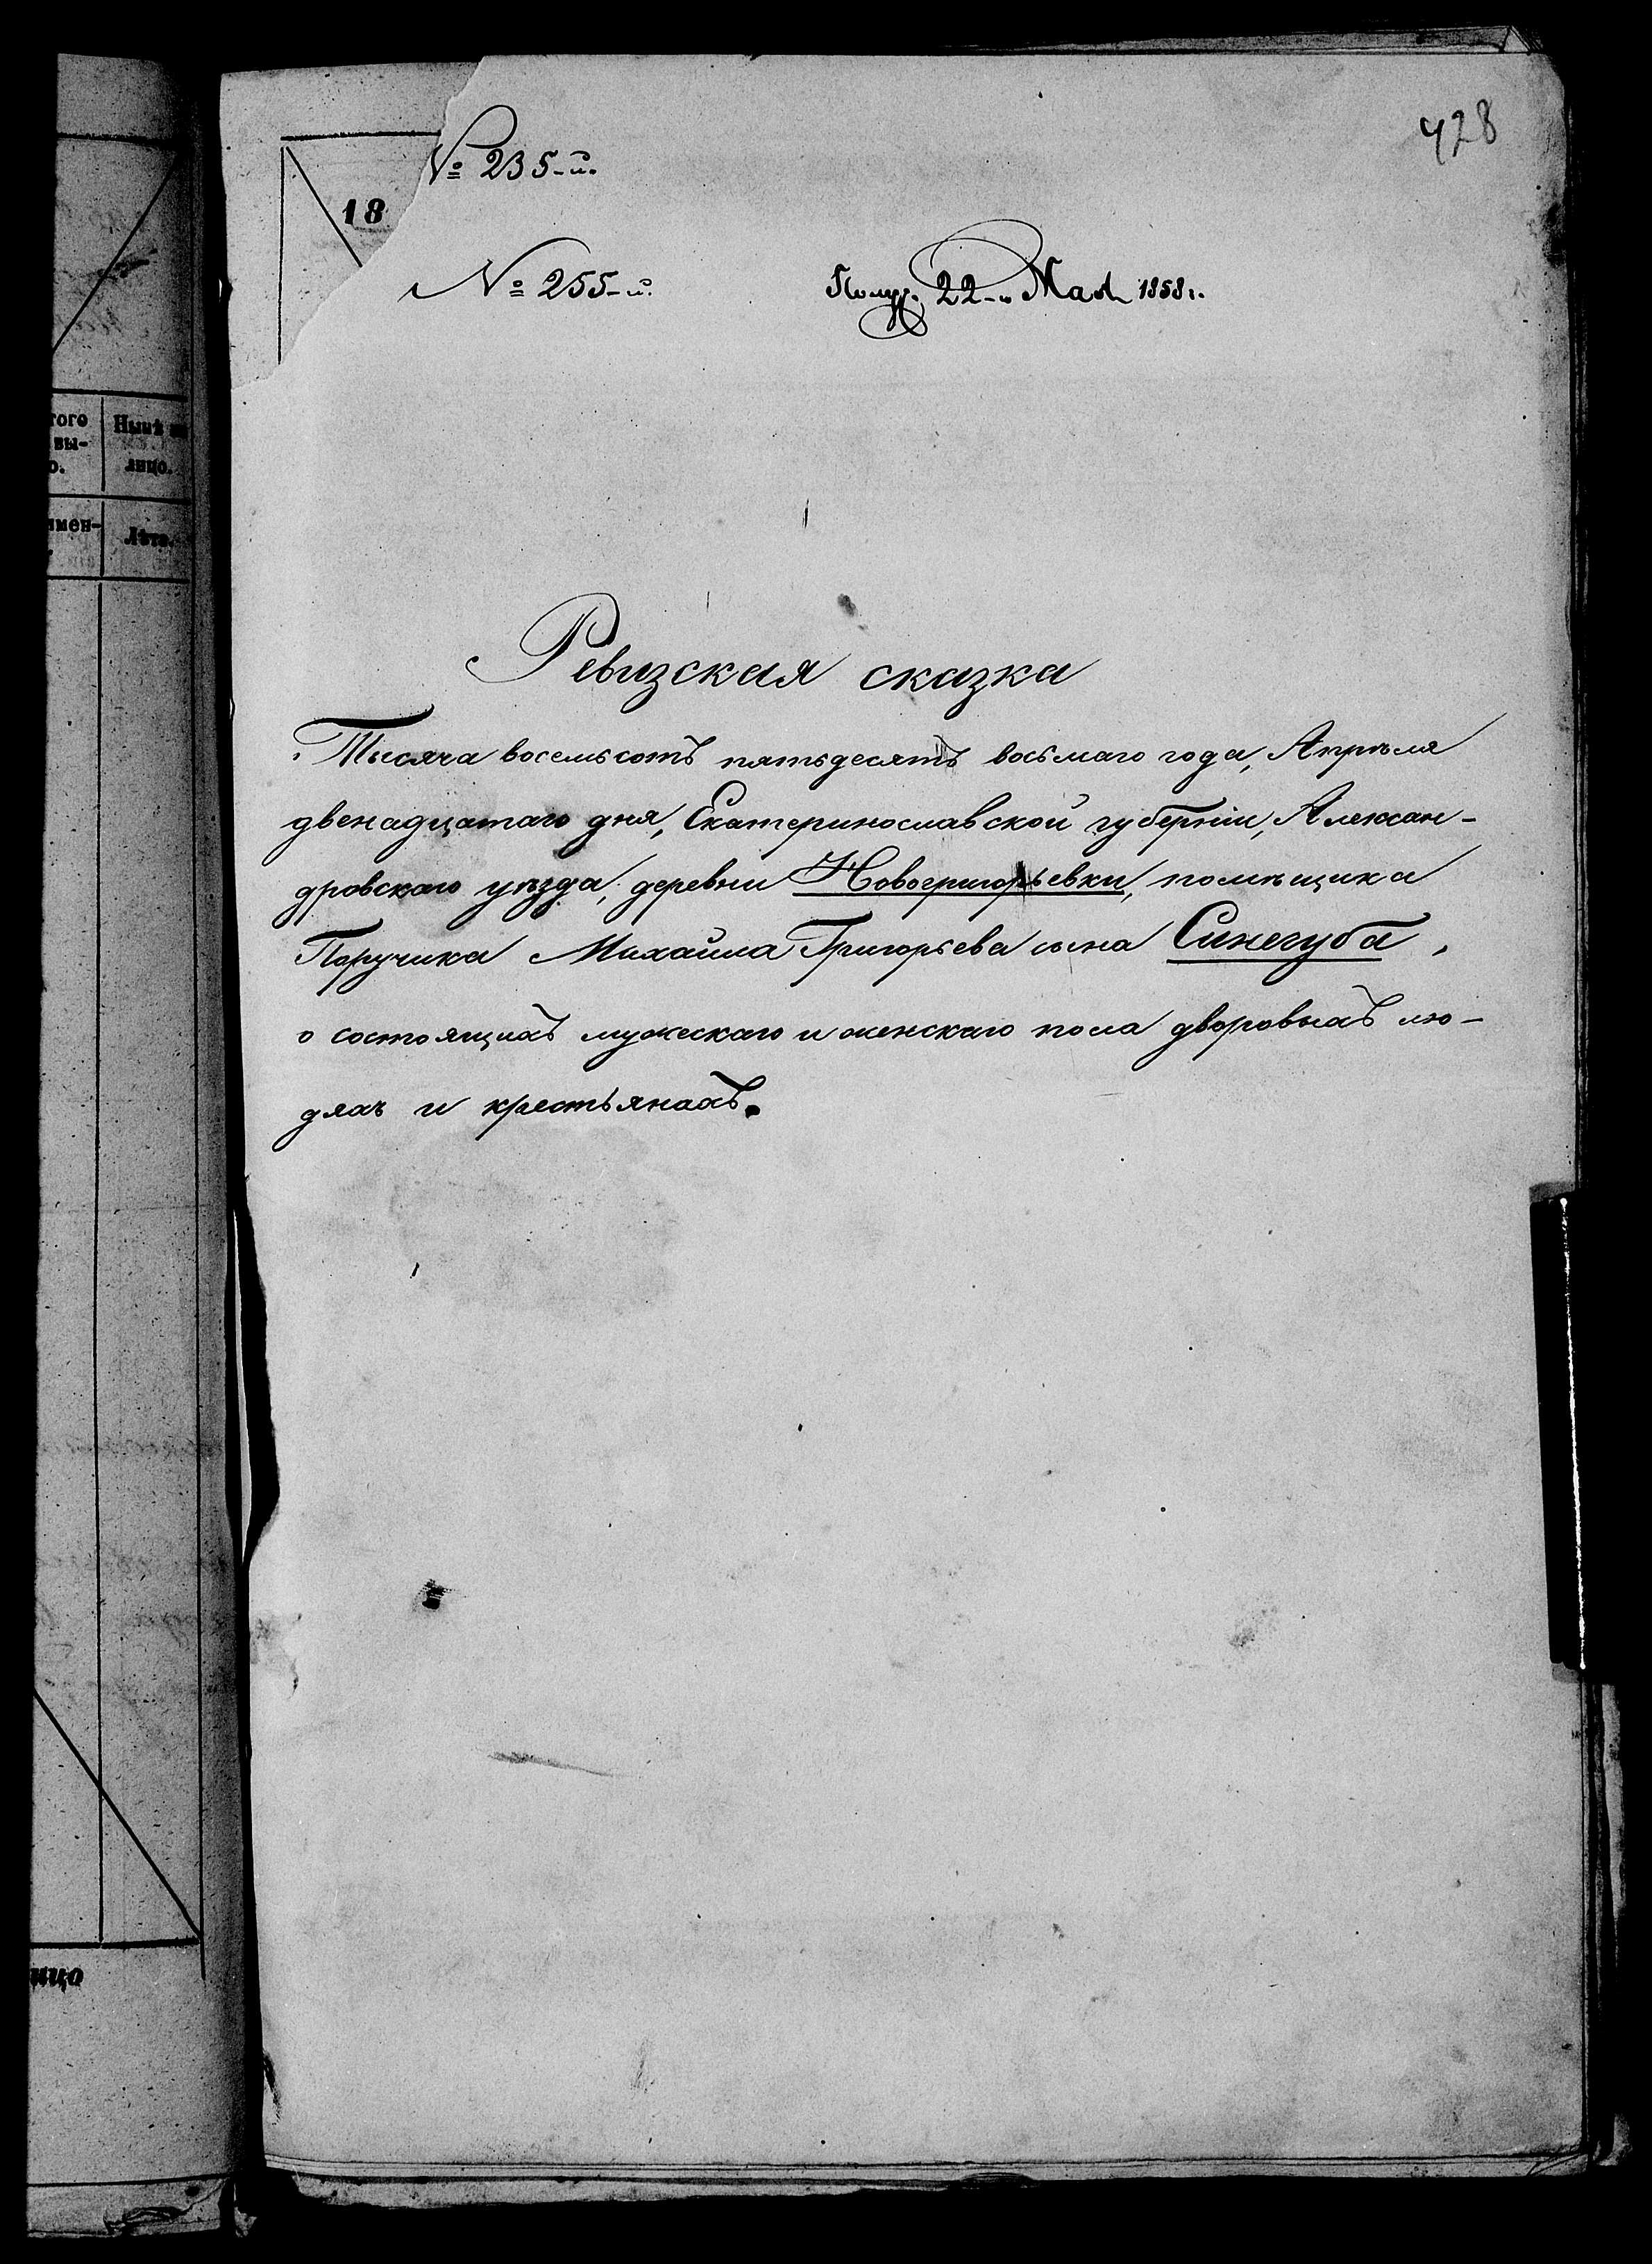 428
№ 235-й.
18
№ 255-й.
Получ. 22-го Мая 1858 г.
того
вы-
о.
Нынѣ
лицо.
имен-
Лѣта.
Ревизская сказка
Тысяча восемьсотъ пятьдесятъ восьмаго года, Апрѣля
двенадцатаго дня, Екатеринославской губерніи, Алексан-
дровскаго уѣзда, деревни Новогригорьевки, помѣщика
Поручика Михаила Григорьева сына Синегуба,
о состоящихъ мужескаго и женскаго пола дворовыхъ лю-
дяхъ и крестьянахъ.
лицо